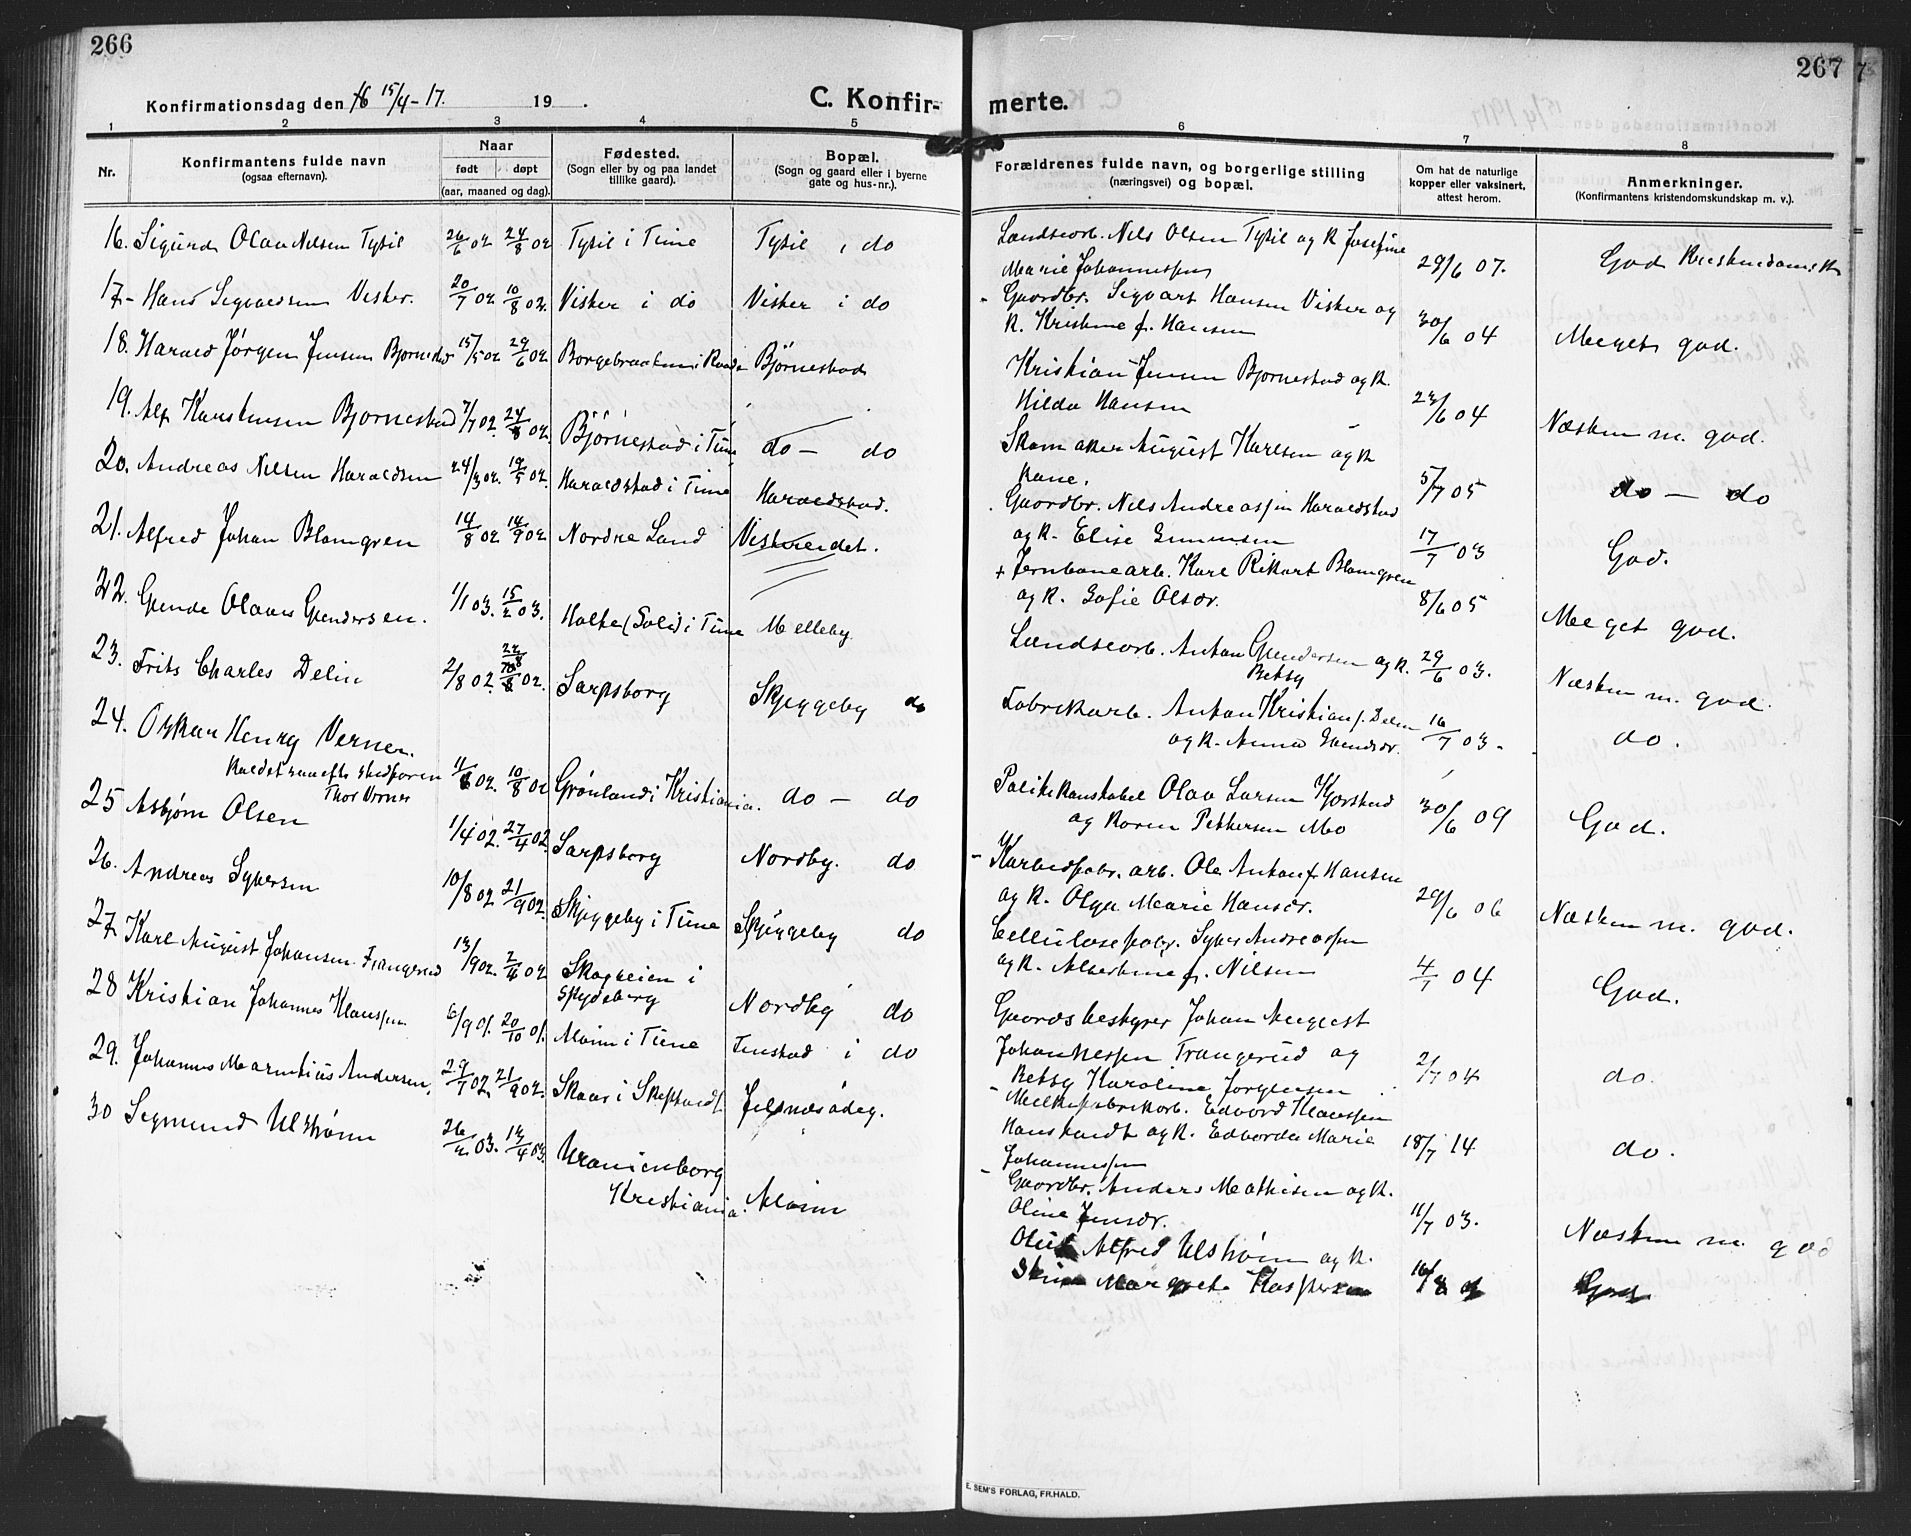 266
Konfirmationsdag den 15/4-17. 19 .
C. Konfir-
1 2 3 4 5
Nr.
Konfirmantens fulde navn
(ogsaa efternavn).
Naar
født døpt
(aar, maaned og dag).
Fødested.
(Sogn eller by og paa landet
tillike gaard).
Bopæl.
(Sogn og gaard eller i byerne
gate og hus-nr.).
16. Sigurd Olav Nilsen Tysil 26/6 02 24/8 02 Tysil i Tune Tysil i do
17- Hans Sigvaldsen Visker. 20/7 02. 10/8 02. Visker i do Visker i do
18. Harald Jørgen Jensen Bjørnestad 15/5 02 29/6 02 i Raade Bjørnestad
19. Alf Karstensen Bjørnestad 7/7 02. 24/8 02. Bjørnestad i Tune do - do
20. Andreas Nilsen Haraldsen 24/3 02. 19/5 02. Haraldstad i Tune Haraldstad.
21. Alfred Johan Blomgren 14/8 02 14/9 02 Nordre Land Viskereidet.
22. Gunde Olaves Gundersen. 1/1 03. 15/2 03. Holte (Soli) i Tune Melleby
23. Frits Charles Delin 2/8 02 02. Sarpsborg Skjeggeby do
24. Oskar Henry Verner.
Kaldet efter stedfaren
Thor Verner
11/6 02. 10/8 02 Grønland i Kristiania. do - do
25 Asbjørn Olsen 1/4 02. 27/4 02. Sarpsborg Nordby. do
26. Andreas Syversen 10/8 02 21/9 02. Skjeggeby i Tune Skjeggeby do
27. Karl August Johansen Trangerud 13/9 02. 2/4 02 Skogheien i
Spydeberg
Nordby do
28 Kristian Johannes Klaussen 6/9 01. 20/10 01. Alvim i Tune Tunstad i do
29. Johannes Marentius Andersen. 29/7 02. 21/9 02. Skaar i Skiptvedt. Jelsnesødeg.
30 Segmund Ulstrøm 03. 13/4 03. Uranienborg
Kristiania.
Alvim
267
merte.
6 7 8
Forældrenes fulde navn, og borgerlige stilling
(næringsvei) og bopæl.
Om hat de naturlige
kopper eller vaksinert,
attest herom.
Anmerkninger.
(Konfirmantens kristendomskundskap m. v.).
Landsearb. Nils Olsen Tysil og K Josefine
Marie Johannessen
29/6 07. God Kristendomsk
- Gaardbr. Sigvart Hansen Visker og
K. Kristine f. Hansen
30/6 04 Meget god.
Kristian Jensen Bjørnestad og K.
Hilda Hansen
23/6 04 Næsten m. god.
Skomaker August Karlsen og K
Kane.
5/7 05 do - do
Gaardbr. Nils Andreassen Haraldstad
og K. Elise Gunnersen
17/7 03 God.
+ Jernbanearb. Karl Rikart Blomgren
og K. Sofie Olsdr.
8/6 05 Meget god.
Landsearb. Anton Gundersen og K.
Betsy
29/6 03. Næsten m. god.
Fabrikarb. Anton Kristian f. Delin
og K. Anna Svendsdr.
16/7 03. do.
Politikonstabel Olav Larsen Kjørstad
og Karen Pettersen Mo
30/6 09 God.
- Karbidfabr. arb. Ole Anton f. Hansen
og K. Olga Marie Hansdr.
29/6 06 Næsten m. god.
Cellulosefabr. Syver Andreassen
og K. Albertine f. Nilsen
4/7 04 God.
Gaardsbestyrer Johan August
Johannessen Trangerud og
Betsy Karoline Jørgensen
2/7 04 do.
- Melkefabrikarb. Edvard Klaussen
og K. Edvarda Marie
Johannessen
18/7 14 do.
- Gaardbr. Anders Mathisen og K.
Oline Jensdr.
11/7 03. Næsten m. god
Alfred Ulstrøm og K.
Margrete Kaspersen
16/8 God
E. SEM'S FORLAG, FR.HALD.